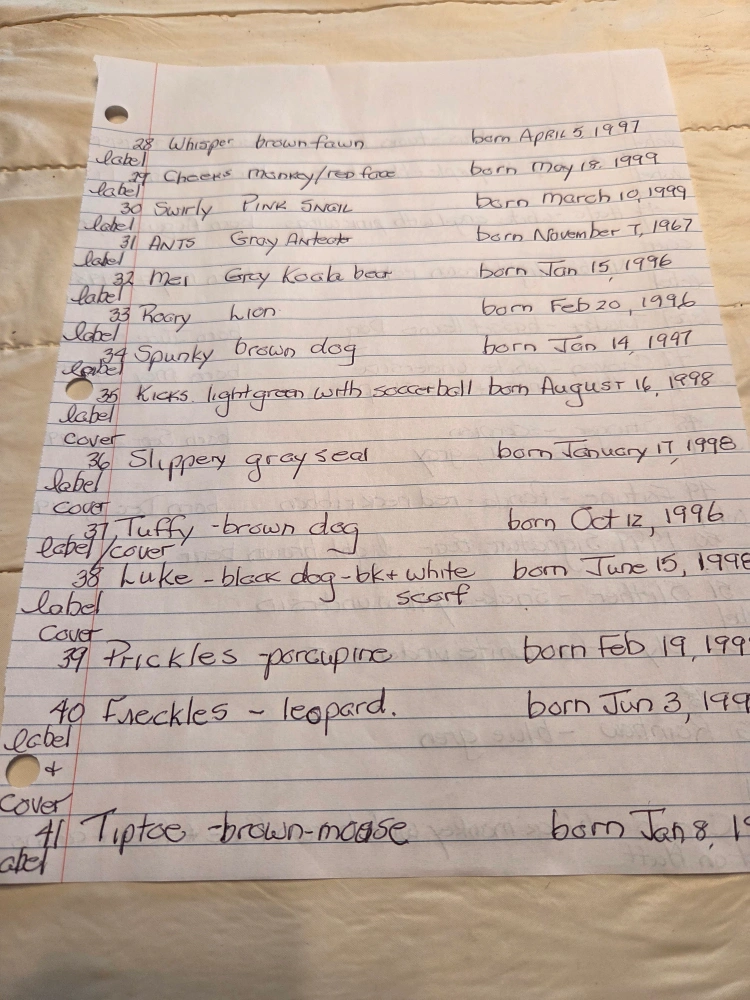 28 Whisper brown fawn born APRIL 5, 1997
label
29 Cheeks monkey/red face born may 18, 1999
label
30 Swirly PINK SNAIL born march 10, 1999
label
31 ANTS Gray Anteatr born November 7, 1967
label
32 Mel Grey Koala bear born Jan 15, 1996
label
33 Roary Lion born Feb 20, 1996
label
34 Spunky brown dog born Jan 14, 1997
label
35 Kicks lightgreen with soccerball born August 16, 1998
label
cover
36 Slippery gray seal born January 17, 1998
label
cover
37 Tuffy - brown dog born Oct 12, 1996
label/cover
38 Luke - black dog - bk + white born June 15, 1998
label scarf
cover
39 Prickles - porcupine born Feb 19, 199
40 Freckles - leopard. born Jun 3, 199
label
+
cover
41 Tiptoe - brown - moose born Jan 8, 19
abel